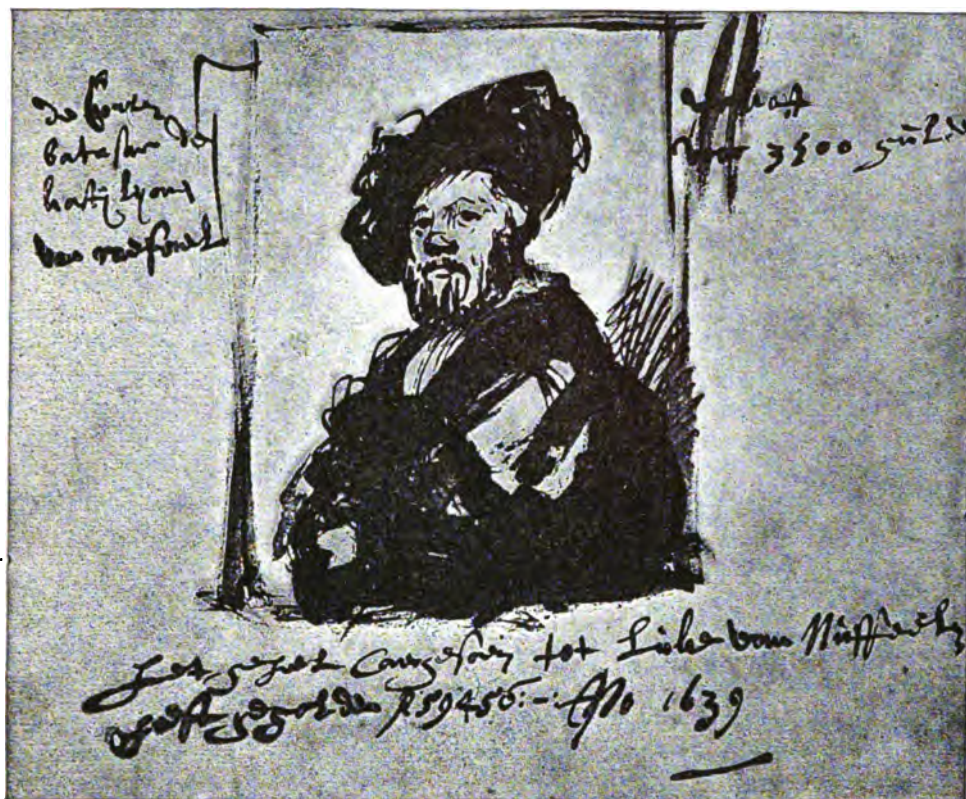 de Conte
batasar de
kastijlyone
van raefael
verkoft
voor 3500 gulde
het geheel caergesoen tot Luke van Nuffeelen
heeft gegolden f 59456:- Ano 1639